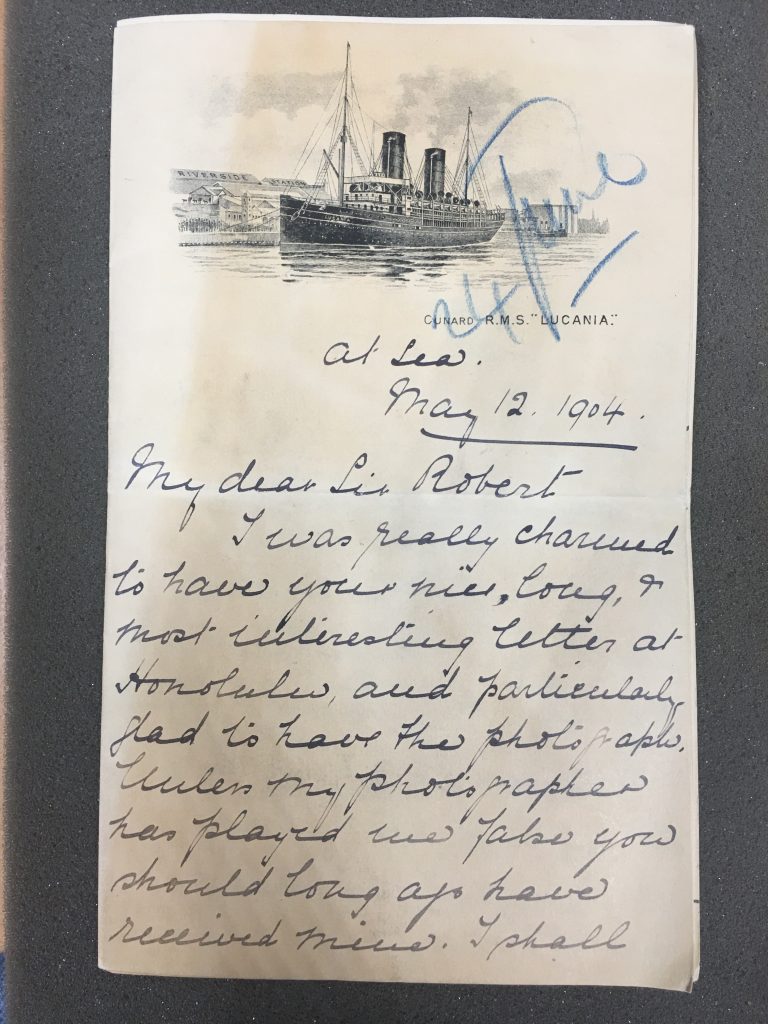 RIVERSIDE STATION
24 June
CUNARD R.M.S. "LUCANIA."
At Sea.
May 12. 1904.
My dear Sir Robert
I was really charmed
to have your nice, long, &
most interesting letter at
Honolulu, and particularly
glad to have the photograph.
Unless my photographer
has played me false you
should long ago have
received mine. I shall